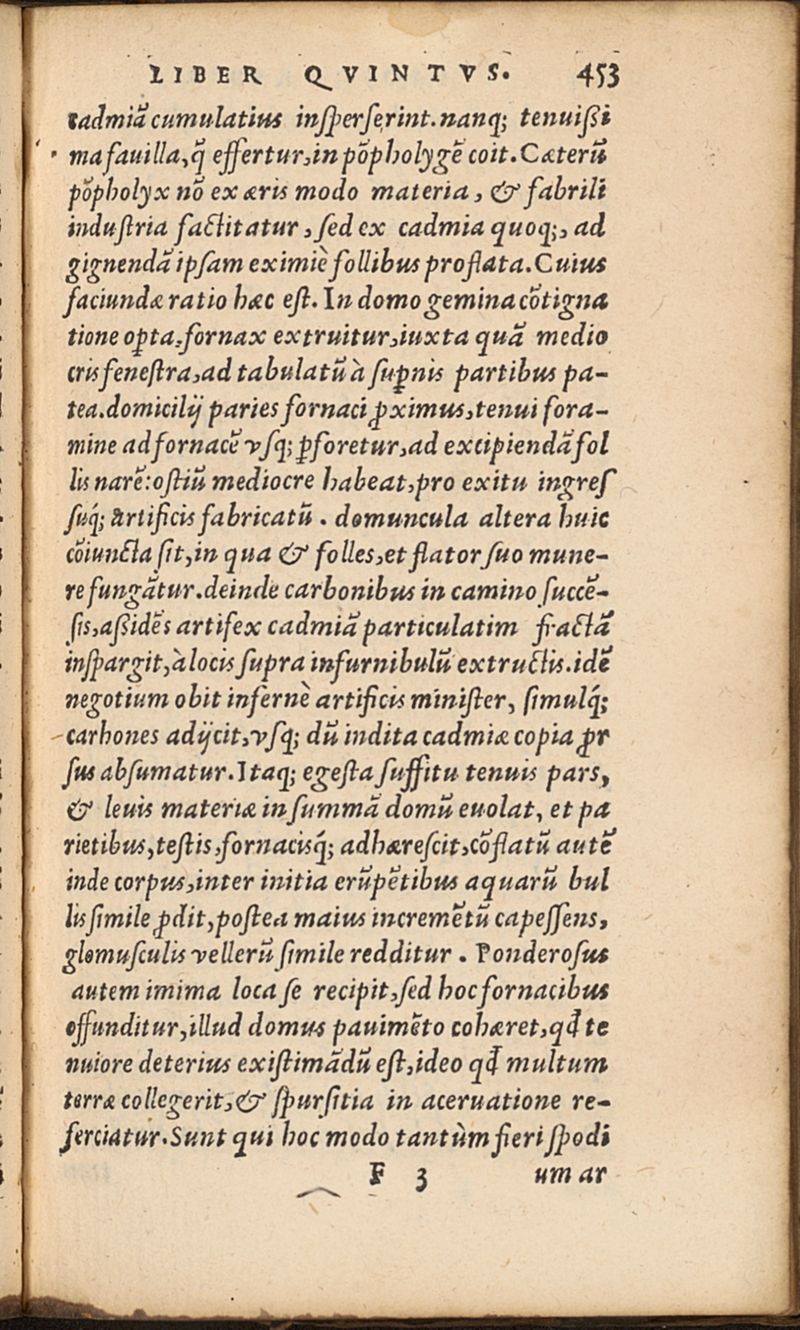 LIBER QVINTVS. 453
cadmiā cumulatius inſperſerint. nanq; tenuißi
ma fauilla, q̃ effertur, in põpholygẽ coit. Cæterũ
põpholyx nõ ex æris modo materia, & fabrili
induſtria factitatur, ſed ex cadmia quoq;, ad
gignendã ipſam eximiè follibus proflata. Cuius
faciundæ ratio hæc eſt. In domo gemina cõtigna
tione oꝑta, fornax extruitur, iuxta quã medio
cris feneſtra, ad tabulatũ à ſuꝑnis partibus pa-
tea. domicilij paries fornaci ꝓximus, tenui fora-
mine ad fornacẽ vſq; ꝑforetur, ad excipiendã fol
lis narẽ: oſtiũ mediocre habeat, pro exitu ingreſ
ſuq́; artificis fabricatũ. domuncula altera huic
cõiuncta ſit, in qua & folles, et flator ſuo mune-
re fungãtur. deinde carbonibus in camino ſuccẽ-
ſis, aßidẽs artifex cadmiã particulatim fractã
inſpargit, à locis ſupra infurnibulũ extructis. idẽ
negotium obit infernè artificis miniſter, ſimulq́;
carbones adijcit, vſq; dũ indita cadmiæ copia ꝓr
ſus abſumatur. Itaq; egeſta ſuffitu tenuis pars,
& leuis materiæ in ſummã domũ euolat, et pa
rietibus, teſtis, fornacisq́; adhæreſcit, cõflatũ autẽ
inde corpus, inter initia erũpẽtibus aquarũ bul
lis ſimile ꝓdit, poſtea maius incremẽtũ capeſſens,
glomuſculis vellerũ ſimile redditur. Ponderoſus
autem imima loca ſe recipit, ſed hoc fornacibus
offunditur, illud domus pauimẽto cohæret, qđ te
nuiore deterius exiſtimãdũ eſt, ideo qđ multum
terræ collegerit, & ſpurſitia in aceruatione re-
ferciatur. Sunt qui hoc modo tantùm fieri ſpodi
F 3 um ar